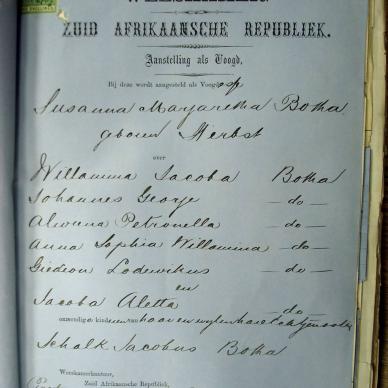 ZUID AFRIKAANSCHE REPUBLIEK.
Aanstelling als Voogd,
Bij deze wordt aangesteld als Voogdesse
Susanna Margaretha Botha
geboren Herbst
over
Willamina Jacoba Botha
Johannes George — do —
Alwina Petronella — do —
Anna Sophia Willamina — do —
Gideon Lodewikus — do —
en
Jacoba Aletta — do —
onmondige kinderen van haar en wylen haar echtgenoot
Schalk Jacobus Botha
Weeskamerkantoor,
Zuid Afrikaansche Republiek,